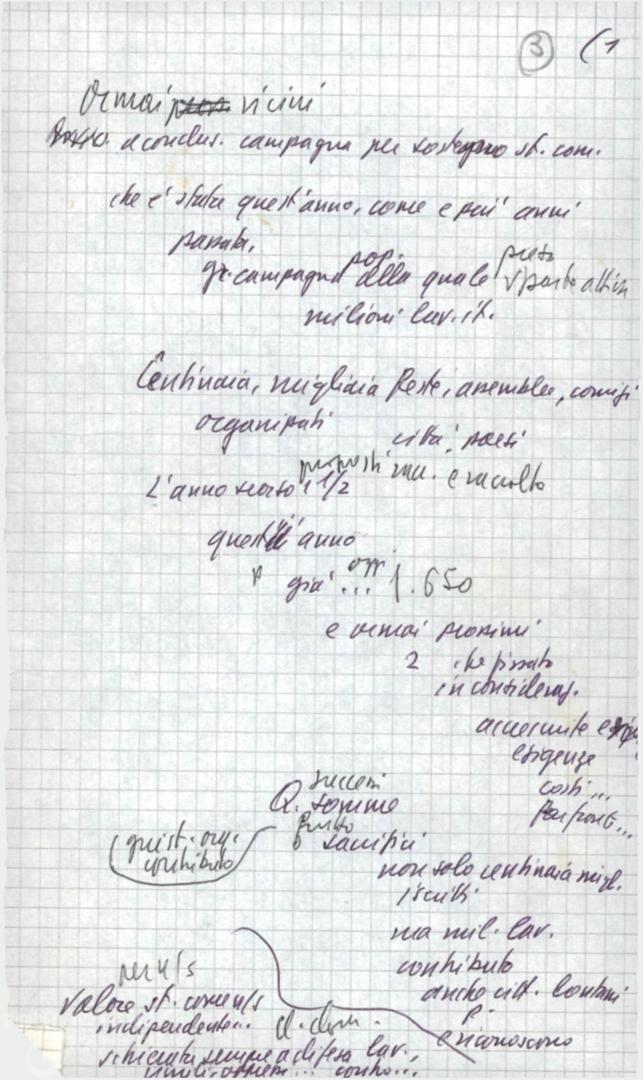 3 (1
Ormai vicini
a conclus. campagna per sostegno st. com.
che è stata quest'anno, come e più anni
passati,
gr. campagna pop. alla quale preso parte attiva
milioni lav. it.
Centinaia, migliaia feste, assemblee, comizi
organizzati
città, paesi
L'anno scorso 1 1/2 e raccolto
quest'anno
già ... 1.650
e ormai prossimi
2 che fissato
in consideraz.
accresciute
esigenze
costi...
far fronte...
Q. somme
successi
frutto
sacrifici
quest. org.
contributo
non solo centinaia migl.
iscritti
ma mil. lav.
contributo
anche citt. lontani
p.
e riconoscono
per n/s
valore st. com.
indipendente..
schierata sempre a difesa lav.,